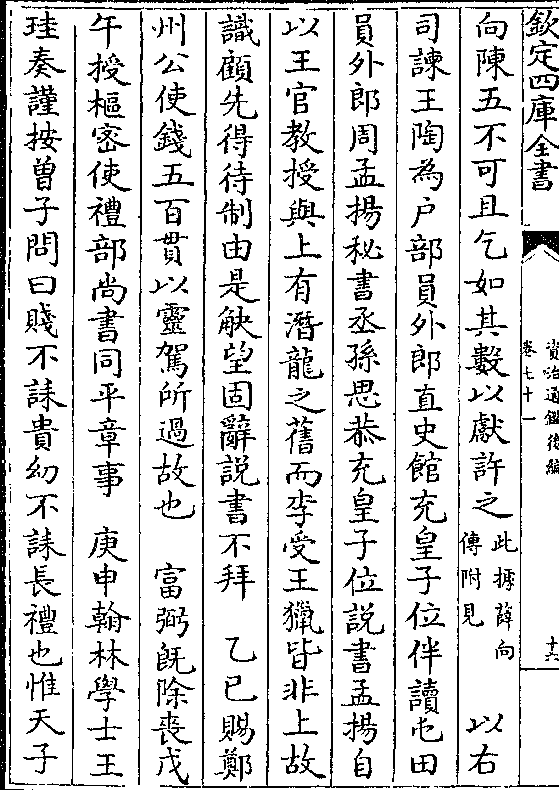 欽定四庫全書
資治通鑑後編
卷七十一
十六
向陳五不可且乞如其數以獻許之此據薛向傳附見 以右
司諫王陶為户部員外郎直史館充皇子位伴讀屯田
員外郎周孟揚秘書丞孫思恭充皇子位説書孟揚自
以王官教授與上有潛龍之舊而李受王獵皆非上故
識顧先得待制由是觖望固辭説書不拜 乙巳賜鄭
州公使錢五百貫以靈駕所過故也 富弼旣除喪戊
午授樞密使禮部尚書同平章事 庚申翰林學士王
珪奏謹按曾子問曰賤不誄貴幼不誄長禮也惟天子